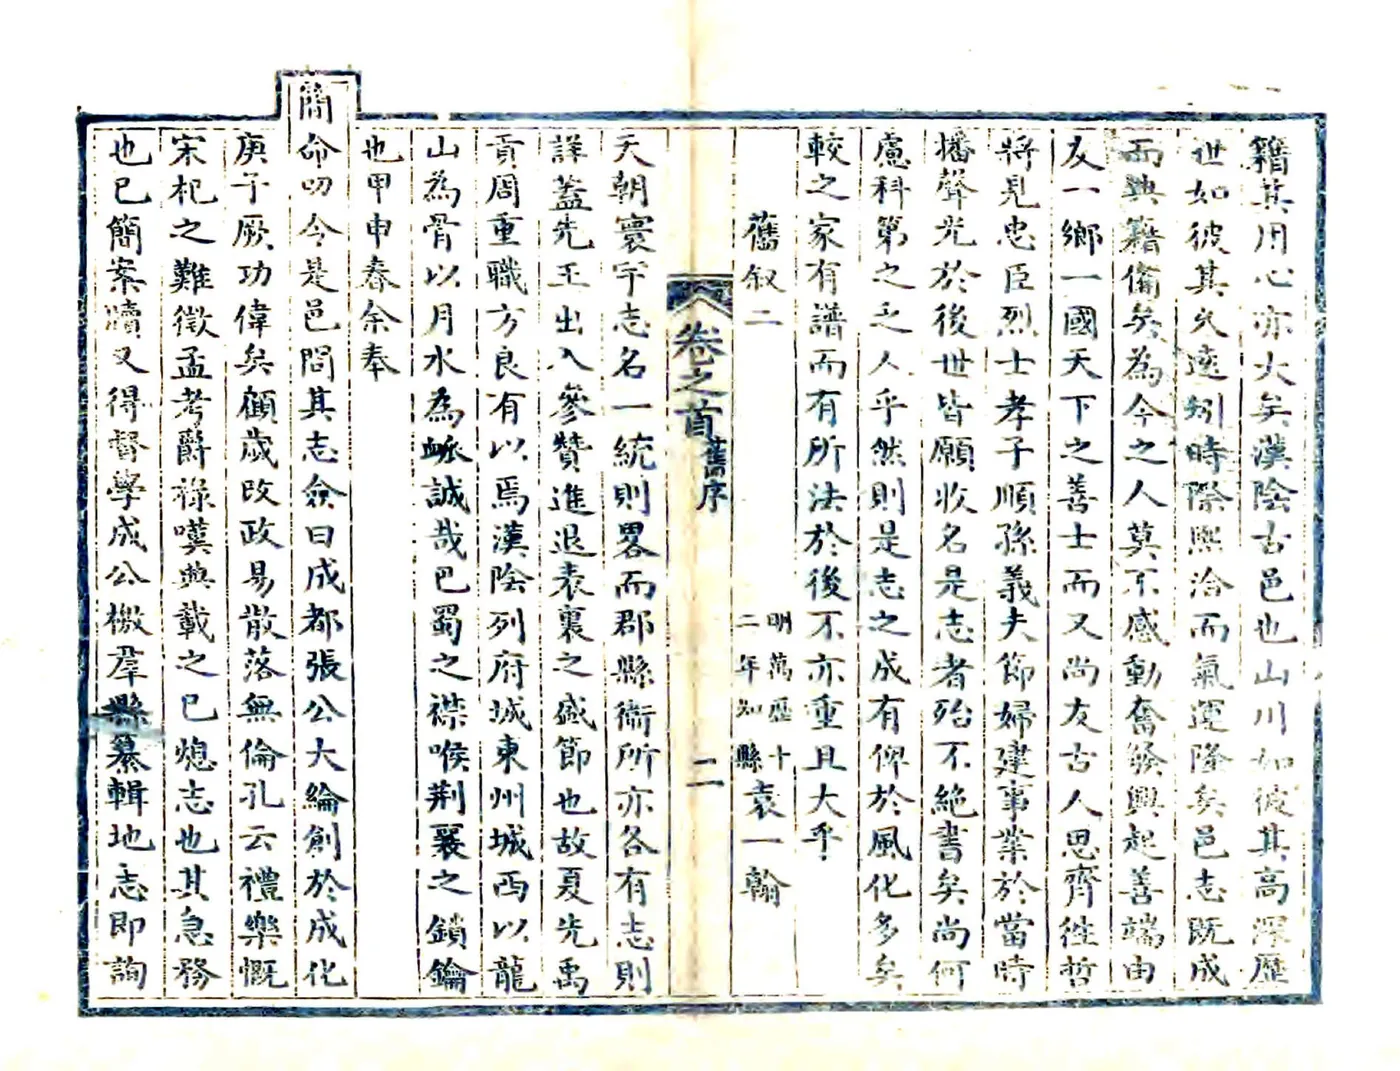 籍其用心亦大矣漢陰古邑也山川如彼其高深歷
世如彼其久遠矧時際熙洽而氣運隆矣邑志既成
而典籍備矣為今之人莫不感動奮發興起善端由
友一鄉一國天下之善士而又尚友古人思齊徃哲
將見忠臣烈士孝子順孫義夫節婦建事業於當時
播聲光於後世皆願收名是志者殆不絕書矣尚何
慮科第之乏人乎然則是志之成有俾於風化多矣
較之家有譜而有所法於後不亦重且大乎
舊叙二
明萬歷十
二年知縣
袁一翰
卷之首
舊序
二
天朝寰宇志名一統則畧而郡縣衞所亦各有志則
詳蓋先王出入參贊進退表裏之盛節也故夏先禹
貢周重職方良有以焉漢陰列府城東州城西以龍
山為骨以月水為衇誠哉巴蜀之襟喉荆襄之鎖鑰
也甲申春余奉
簡命叨令是邑問其志僉曰成都張公大綸創於成化
庚子厥功偉矣顧歲改政易散落無倫孔云禮樂慨
宋杞之難徵孟考爵祿嘆典載之已熄志也其急務
也已簡案牘又得督學成公檄羣縣纂輯地志即詢